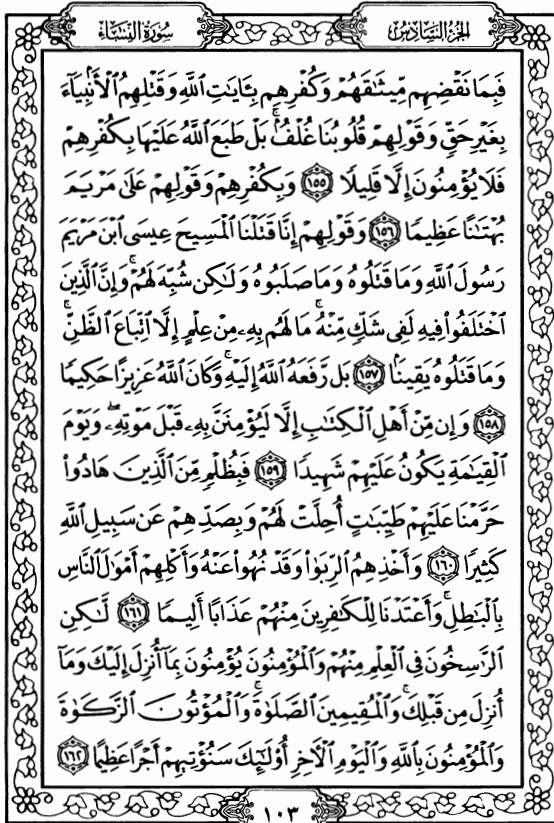 سُورَةُ النِّسَاءِ
الجُزْءُ السَّادِسُ
فَبِمَا نَقْضِهِم مِّيثَٰقَهُمْ وَكُفْرِهِم بِـَٔايَٰتِ ٱللَّهِ وَقَتْلِهِمُ ٱلْأَنۢبِيَآءَ
بِغَيْرِ حَقٍّ وَقَوْلِهِمْ قُلُوبُنَا غُلْفٌۢ ۚ بَلْ طَبَعَ ٱللَّهُ عَلَيْهَا بِكُفْرِهِمْ
فَلَا يُؤْمِنُونَ إِلَّا قَلِيلًا ١٥٥ وَبِكُفْرِهِمْ وَقَوْلِهِمْ عَلَىٰ مَرْيَمَ
بُهْتَٰنًا عَظِيمًا ١٥٦ وَقَوْلِهِمْ إِنَّا قَتَلْنَا ٱلْمَسِيحَ عِيسَى ٱبْنَ مَرْيَمَ
رَسُولَ ٱللَّهِ وَمَا قَتَلُوهُ وَمَا صَلَبُوهُ وَلَٰكِن شُبِّهَ لَهُمْ ۚ وَإِنَّ ٱلَّذِينَ
ٱخْتَلَفُوا۟ فِيهِ لَفِى شَكٍّ مِّنْهُ ۚ مَا لَهُم بِهِۦ مِنْ عِلْمٍ إِلَّا ٱتِّبَاعَ ٱلظَّنِّ ۚ
وَمَا قَتَلُوهُ يَقِينًۢا ١٥٧ بَل رَّفَعَهُ ٱللَّهُ إِلَيْهِ ۚ وَكَانَ ٱللَّهُ عَزِيزًا حَكِيمًا
١٥٨ وَإِن مِّنْ أَهْلِ ٱلْكِتَٰبِ إِلَّا لَيُؤْمِنَنَّ بِهِۦ قَبْلَ مَوْتِهِۦ ۖ وَيَوْمَ
ٱلْقِيَٰمَةِ يَكُونُ عَلَيْهِمْ شَهِيدًا ١٥٩ فَبِظُلْمٍ مِّنَ ٱلَّذِينَ هَادُوا۟
حَرَّمْنَا عَلَيْهِمْ طَيِّبَٰتٍ أُحِلَّتْ لَهُمْ وَبِصَدِّهِمْ عَن سَبِيلِ ٱللَّهِ
كَثِيرًا ١٦٠ وَأَخْذِهِمُ ٱلرِّبَوٰا۟ وَقَدْ نُهُوا۟ عَنْهُ وَأَكْلِهِمْ أَمْوَٰلَ ٱلنَّاسِ
بِٱلْبَٰطِلِ ۚ وَأَعْتَدْنَا لِلْكَٰفِرِينَ مِنْهُمْ عَذَابًا أَلِيمًا ١٦١ لَّٰكِنِ
ٱلرَّٰسِخُونَ فِى ٱلْعِلْمِ مِنْهُمْ وَٱلْمُؤْمِنُونَ يُؤْمِنُونَ بِمَآ أُنزِلَ إِلَيْكَ وَمَآ
أُنزِلَ مِن قَبْلِكَ ۚ وَٱلْمُقِيمِينَ ٱلصَّلَوٰةَ ۚ وَٱلْمُؤْتُونَ ٱلزَّكَوٰةَ
وَٱلْمُؤْمِنُونَ بِٱللَّهِ وَٱلْيَوْمِ ٱلْأَخِرِ أُو۟لَٰٓئِكَ سَنُؤْتِيهِمْ أَجْرًا عَظِيمًا ١٦٢
١٠٣